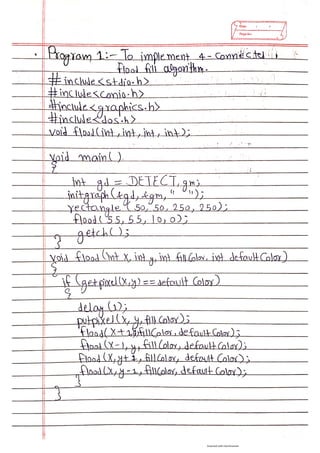 Date : / /
Page No :
• Program 1:- To implement 4-connected
flood fill algorithm.
#include<stdio.h>
#include<conio.h>
#include<graphics.h>
#include<dos.h>
void flood(int, int, int, int);
void main()
{
int gd = DETECT, gm;
initgraph(&gd, &gm, " ");
rectangle (50, 50, 250, 250);
flood(55, 55, 10, 0);
getch();
}
void flood(int x, int y, int fillColor, int defaultColor)
{
if (getpixel(x,y) == default Color)
{
delay(1);
putpixel(x, y, fillColor);
flood(x+1, y, fillColor, defaultColor);
flood(x-1, y, fillColor, defaultColor);
flood(x, y+1, fillColor, default Color);
flood(x, y-1, fillColor, defaultColor);
}
}
Scanned with CamScanner